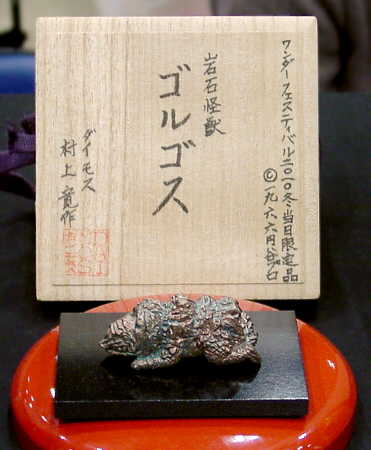 ワンダーフェスティバル二〇一〇冬当日限定品
©一九六六円谷プロ
岩石怪獣
ゴルゴス
ダイモス
村上寛作